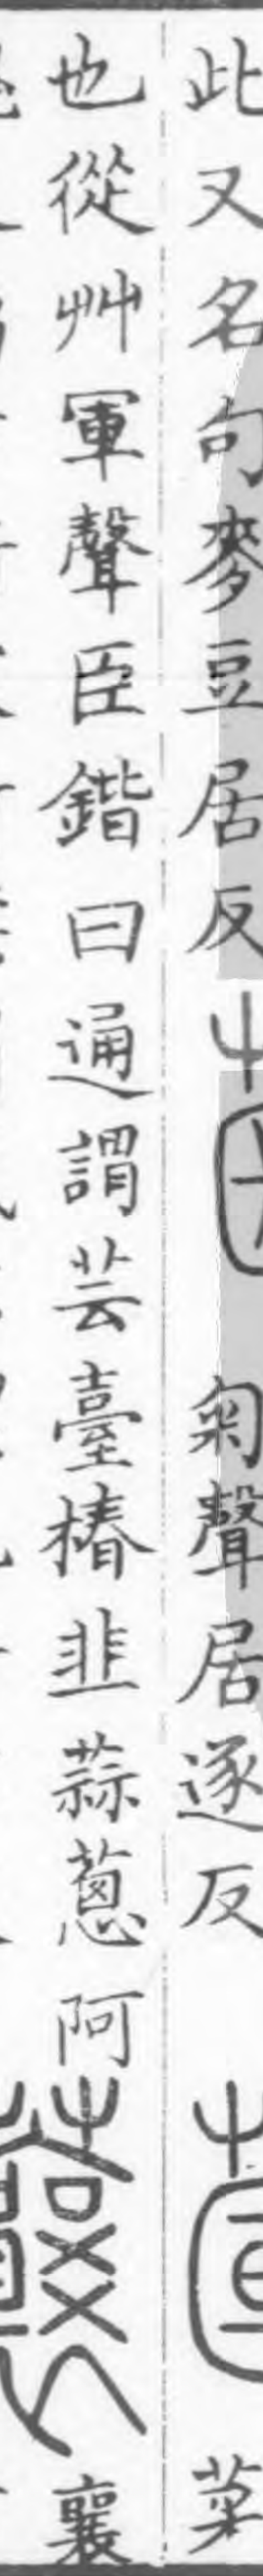 此又名句麥豆居反 匊聲居逐反 菜
也從艸軍聲臣鍇曰通謂芸臺椿韭蒜蔥阿 襄